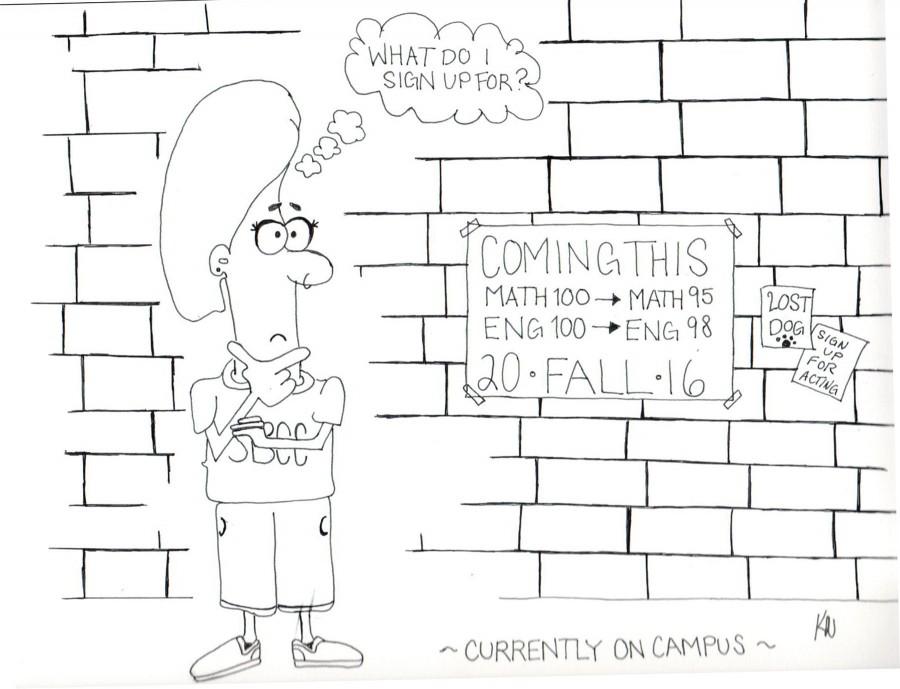 WHAT DO I
SIGN UP FOR?
COMING THIS
MATH 100 → MATH 95
ENG 100 → ENG 98
20 • FALL • 16
LOST
DOG
SIGN
UP
FOR
ACTING
SBCC
~ CURRENTLY ON CAMPUS ~
KN